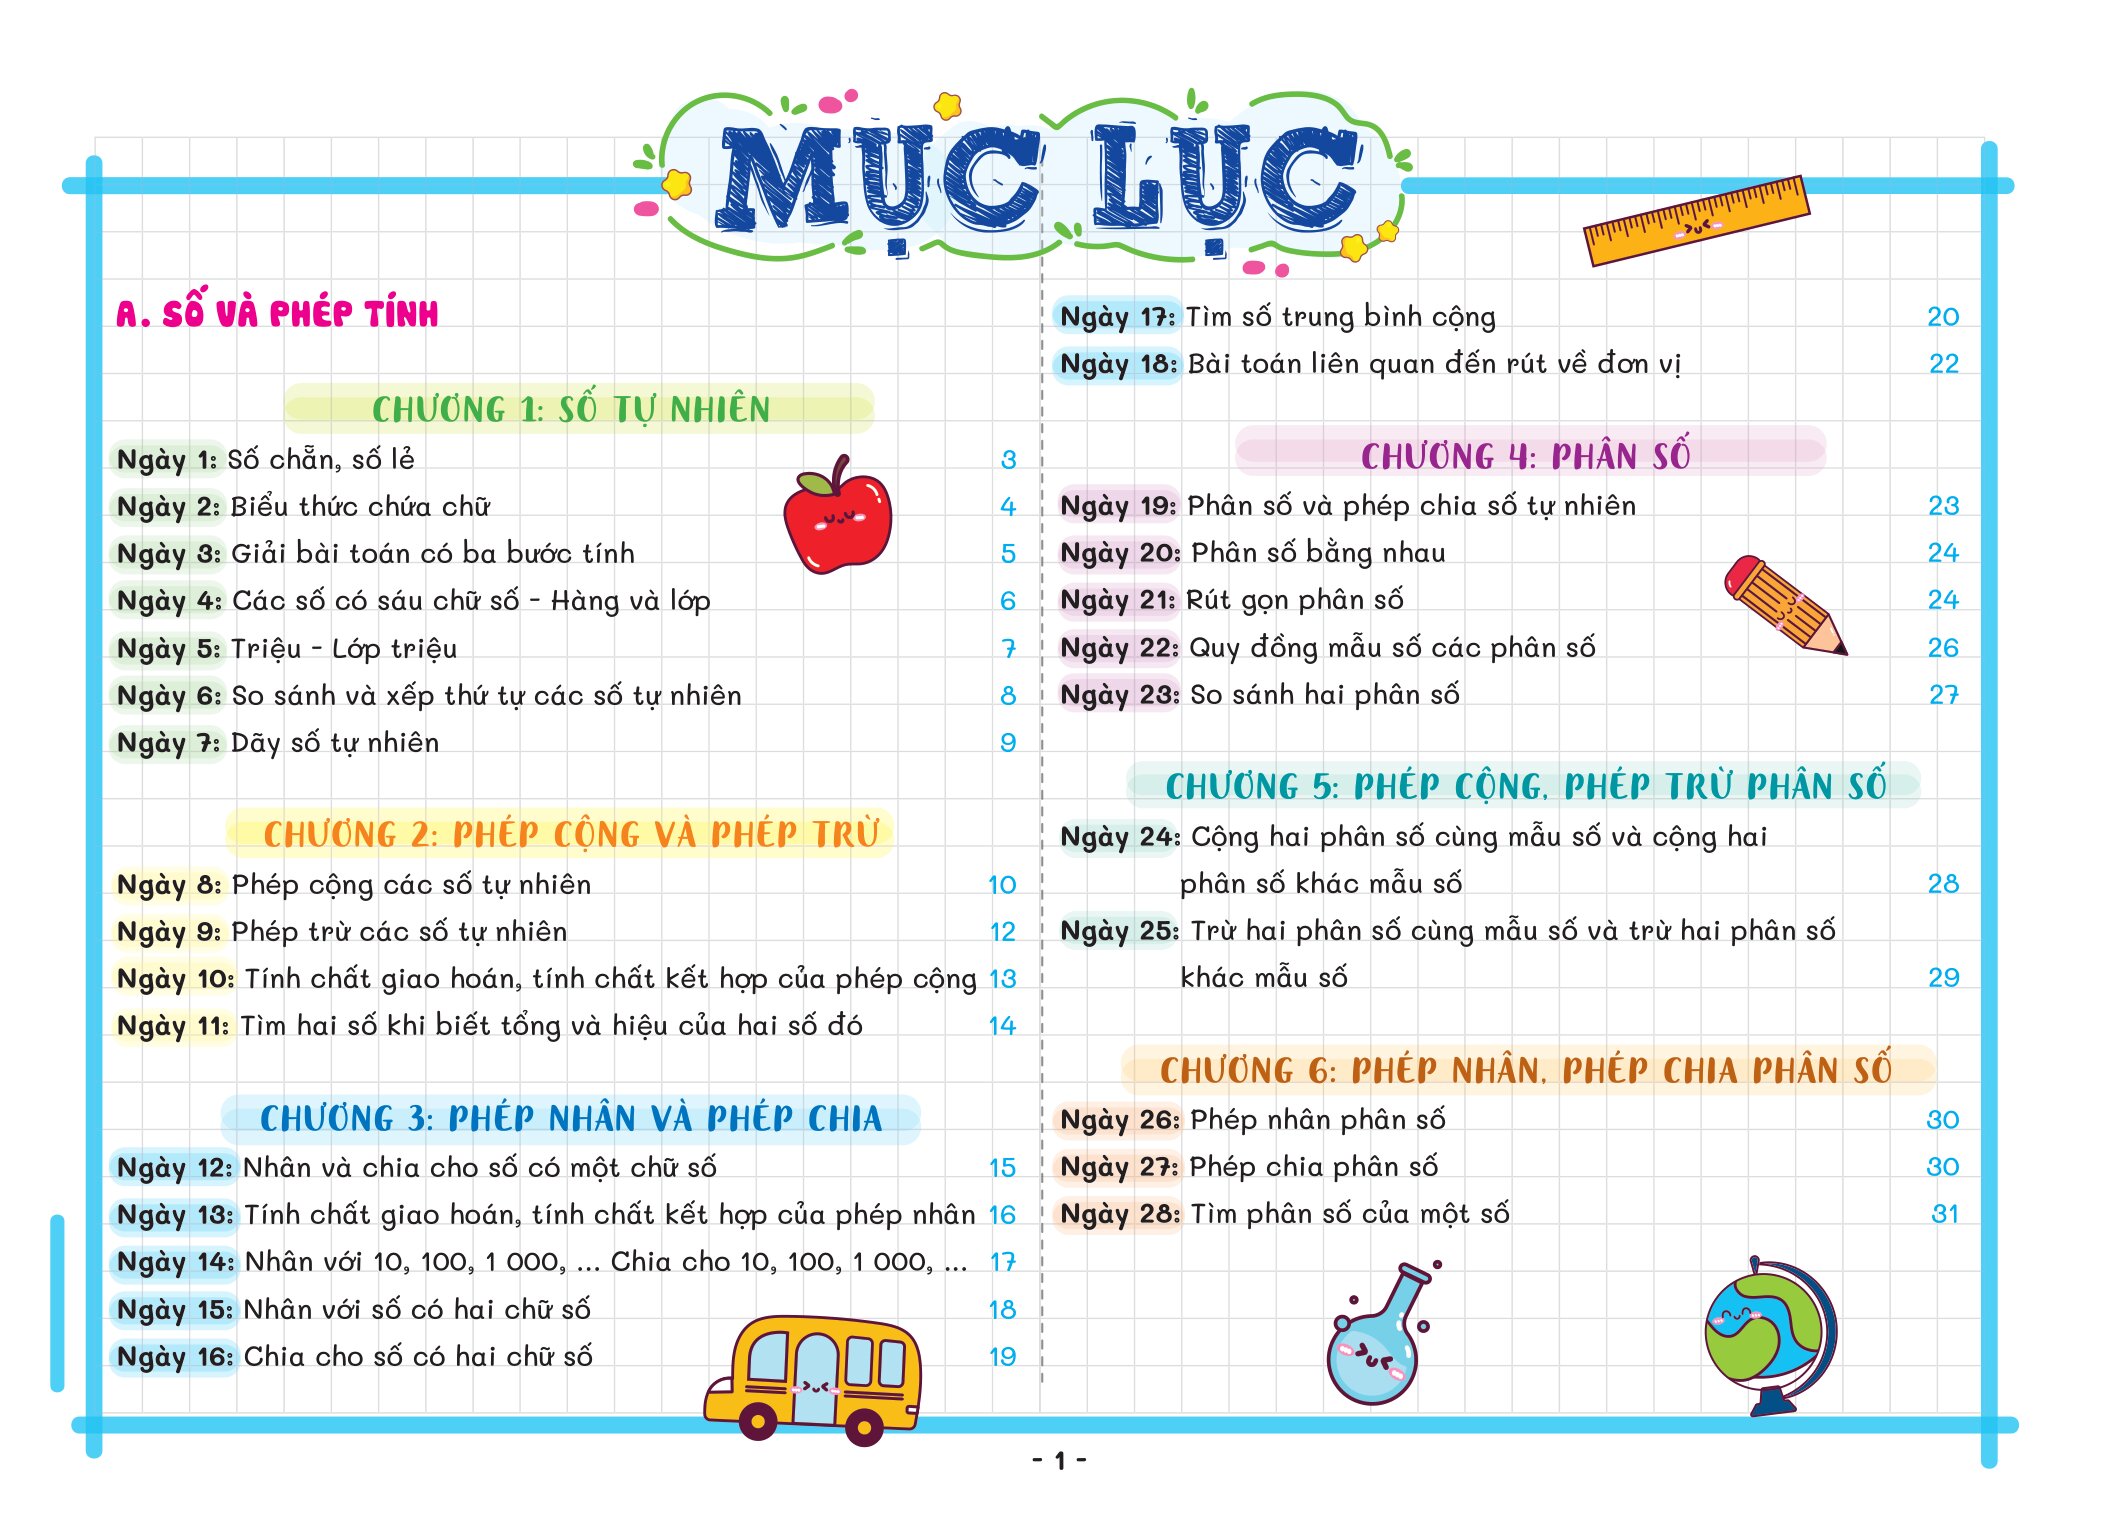 MỤC LỤC
A. SỐ VÀ PHÉP TÍNH
CHƯƠNG 1: SỐ TỰ NHIÊN
Ngày 1: Số chẵn, số lẻ 3
Ngày 2: Biểu thức chứa chữ 4
Ngày 3: Giải bài toán có ba bước tính 5
Ngày 4: Các số có sáu chữ số - Hàng và lớp 6
Ngày 5: Triệu - Lớp triệu 7
Ngày 6: So sánh và xếp thứ tự các số tự nhiên 8
Ngày 7: Dãy số tự nhiên 9
CHƯƠNG 2: PHÉP CỘNG VÀ PHÉP TRỪ
Ngày 8: Phép cộng các số tự nhiên 10
Ngày 9: Phép trừ các số tự nhiên 12
Ngày 10: Tính chất giao hoán, tính chất kết hợp của phép cộng 13
Ngày 11: Tìm hai số khi biết tổng và hiệu của hai số đó 14
CHƯƠNG 3: PHÉP NHÂN VÀ PHÉP CHIA
Ngày 12: Nhân và chia cho số có một chữ số 15
Ngày 13: Tính chất giao hoán, tính chất kết hợp của phép nhân 16
Ngày 14: Nhân với 10, 100, 1 000, ... Chia cho 10, 100, 1 000, ... 17
Ngày 15: Nhân với số có hai chữ số 18
Ngày 16: Chia cho số có hai chữ số 19
Ngày 17: Tìm số trung bình cộng 20
Ngày 18: Bài toán liên quan đến rút về đơn vị 22
CHƯƠNG 4: PHÂN SỐ
Ngày 19: Phân số và phép chia số tự nhiên 23
Ngày 20: Phân số bằng nhau 24
Ngày 21: Rút gọn phân số 24
Ngày 22: Quy đồng mẫu số các phân số 26
Ngày 23: So sánh hai phân số 27
CHƯƠNG 5: PHÉP CỘNG, PHÉP TRỪ PHÂN SỐ
Ngày 24: Cộng hai phân số cùng mẫu số và cộng hai
phân số khác mẫu số 28
Ngày 25: Trừ hai phân số cùng mẫu số và trừ hai phân số
khác mẫu số 29
CHƯƠNG 6: PHÉP NHÂN, PHÉP CHIA PHÂN SỐ
Ngày 26: Phép nhân phân số 30
Ngày 27: Phép chia phân số 30
Ngày 28: Tìm phân số của một số 31
- 1 -